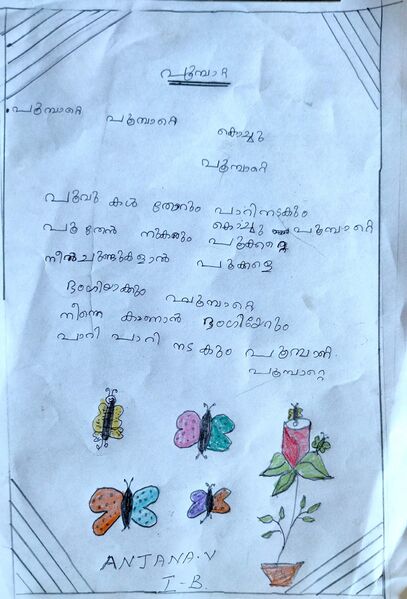 പൂമ്പാറ്റ
പൂമ്പാറ്റെ പൂമ്പാറ്റെ
കൊച്ചു
പൂമ്പാറ്റെ
പൂവു കൾ തോറും പാറിനടകും
പൂ തേൻ നുകരും കൊച്ചു പൂമ്പാറ്റെ
നീൻചുണ്ടുകളാൻ പൂക്കളെ
ഭംഗിയാക്കും പൂമ്പാറ്റെ
നിന്നെ കാണാൻ ഭംഗിയേറും
പാറി പാറി നട കും പൂമ്പാറ്റെ
പൂമ്പാറ്റെ
ANJANA.V
I-B.